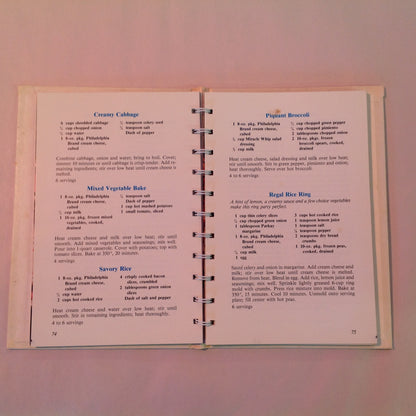 Creamy Cabbage
6 cups shredded cabbage
½ cup chopped onion
½ cup water
1 8-oz. pkg. Philadelphia
Brand cream cheese,
cubed
½ teaspoon celery seed
½ teaspoon salt
Dash of pepper
Combine cabbage, onion and water; bring to boil. Cover;
simmer 10 minutes or until cabbage is crisp-tender. Add re-
maining ingredients; stir over low heat until cream cheese is
melted.
6 servings
Mixed Vegetable Bake
1 8-oz. pkg. Philadelphia
Brand cream cheese,
cubed
cup milk
1 10-oz. pkg. frozen mixed
vegetables, cooked,
drained
teaspoon salt
Dash of pepper
2 cups hot mashed potatoes
1 small tomato, sliced
Heat cream cheese and milk over low heat; stir until
smooth. Add mixed vegetables and seasonings; mix well.
Pour into 1-quart casserole. Cover with potatoes; top with
tomato slices. Bake at 350°, 20 minutes.
4 servings
Savory Rice
1 8-oz. pkg. Philadelphia
Brand cream cheese,
cubed
cup water
3 cups hot cooked rice
4 crisply cooked bacon
slices, crumbled
2 tablespoons green onion
slices
Dash of salt and pepper
Heat cream cheese and water over low heat; stir until
smooth. Stir in remaining ingredients; heat thoroughly.
4 to 6 servings
74
Piquant Broccoli
1 8-oz. pkg. Philadelphia
Brand cream cheese,
cubed
cup Miracle Whip salad
dressing
cup milk
cup chopped green pepper
cup chopped pimiento
2 tablespoons chopped onion
2 10-oz. pkgs. frozen
broccoli spears, cooked,
drained
Heat cream cheese, salad dressing and milk over low heat;
stir until smooth. Stir in green pepper, pimiento and onion;
heat thoroughly. Serve over hot broccoli.
4 to 6 servings
Regal Rice Ring
A hint of lemon, a creamy sauce and a few choice vegetables
make this ring party perfect.
1 cup thin celery slices
cup chopped green onion
2 tablespoons Parkay
margarine
1 8-oz. pkg. Philadelphia
Brand cream cheese,
cubed
cup milk
1 egg
3 cups hot cooked rice
1 teaspoon lemon juice
1 teaspoon salt
teaspoon pepper
2 teaspoons dry bread
crumbs
1 10-oz. pkg. frozen peas,
cooked, drained
Sauté celery and onion in margarine. Add cream cheese and
milk; stir over low heat until cream cheese is melted.
Remove from heat. Blend in egg. Add rice, lemon juice and
seasonings; mix well. Sprinkle lightly greased 6-cup ring
mold with crumbs. Press rice mixture into mold. Bake at
350°, 15 minutes. Cool 10 minutes. Unmold onto serving
plate; fill center with hot peas.
6 servings
75